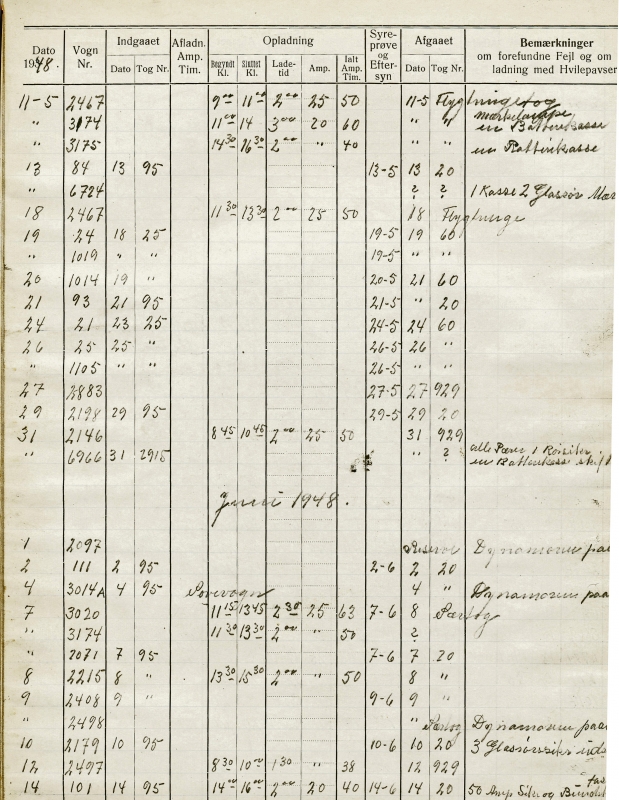 Dato 1948. Vogn Nr. Indgaaet Dato Tog Nr. Afladn. Amp. Tim. Opladning Begyndt Kl. Sluttet Kl. Ladetid Amp. Ialt Amp. Tim. Syreprøve og Eftersyn Afgaaet Dato Tog Nr. Bemærkninger om forefundne Fejl og om ladning med Hvilepavser
11-5 2467 9 00 11 00 2 00 25 50 11-5 Flygtningetog
" 3174 11 00 14 3 00 20 60 " "
en Batterikasse
" 3175 14 30 16 30 2 00 " 40 " " en Batterikasse
13 84 13 95 13-5 13 20
" 6724 ? ? 1 Kasse 2 Glassør
18 2467 11 30 13 30 2 00 25 50 18
19 24 18 25 19-5 19 60
" 1019 " " 19-5 " "
20 1014 19 " 20-5 21 60
21 93 21 95 21-5 " 20
24 21 23 25 24-5 24 60
26 25 25 " 26-5 26 "
" 1105 " " 26-5 "
27 2883 27-5 27 929
29 2198 29 95 29-5 29 20
31 2146 8 45 10 45 2 00 25 50 31 929
" 6966 31 2915 " ? alle Pærer 1
en Batterikasse
Juni 1948.
1 2097 Reserve Dynamoren paa
2 111 2 95 2-6 2 20
4 3014A 4 95 Sovevogn 4 " Dynamoren paa
7 3020 11 15 13 45 2 30 25 63 7-6 8 Særtog
" 3174 11 30 13 30 2 00 " 50 ?
" 2071 7 95 7-6 7 20
8 2215 8 " 13 30 15 30 2 00 " 50 8 "
9 2408 9 " 9-6 9 "
" 2498 " Særtog Dynamoren paa
10 2179 10 95 10-6 10 20 3
12 2497 8 30 10 00 1 30 " 38 12 929
14 101 14 95 14 00 16 00 2 00 20 40 14-6 14 20 50 Amp. Sikr og